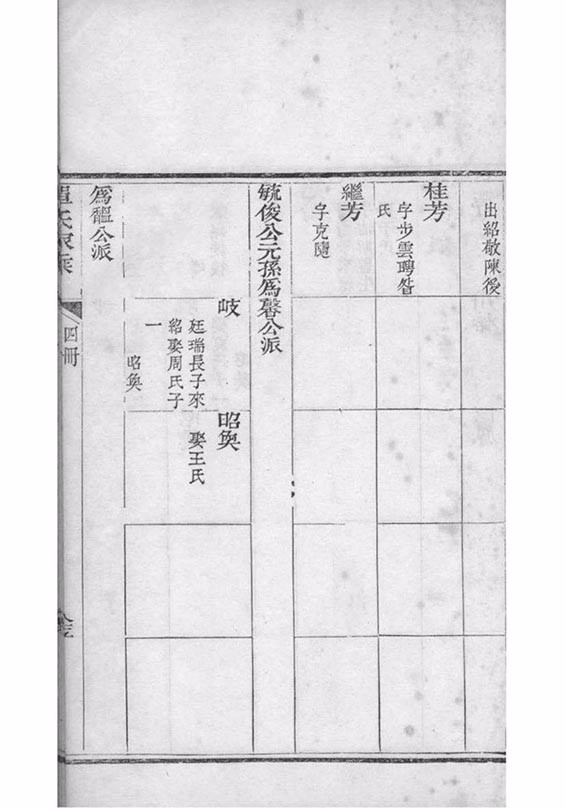 出紹敬陳後
桂芳
字步雲聘昝
氏
繼芳
字克隨
毓俊公元孫爲馨公派
岐
廷瑞長子來
紹娶周氏子
一
昭奐
昭奐
娶王氏
爲醞公派
氏家乘
四冊